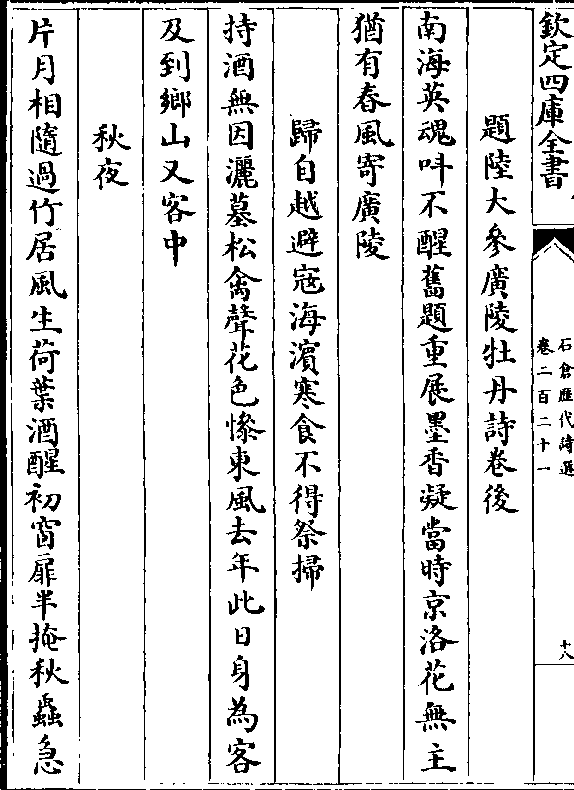 欽定四庫全書
石倉歷代詩選
卷二百二十一
十八
題陸大參廣陵牡丹詩卷後
南海英魂呌不醒舊題重展墨香凝當時京洛花無主
猶有春風寄廣陵
歸自越避寇海濵寒食不得祭掃
持酒無因灑墓松禽聲花色慘東風去年此日身為客
及到鄉山又客中
秋夜
片月相隨過竹居風生荷葉酒醒初窗扉半掩秋蟲急